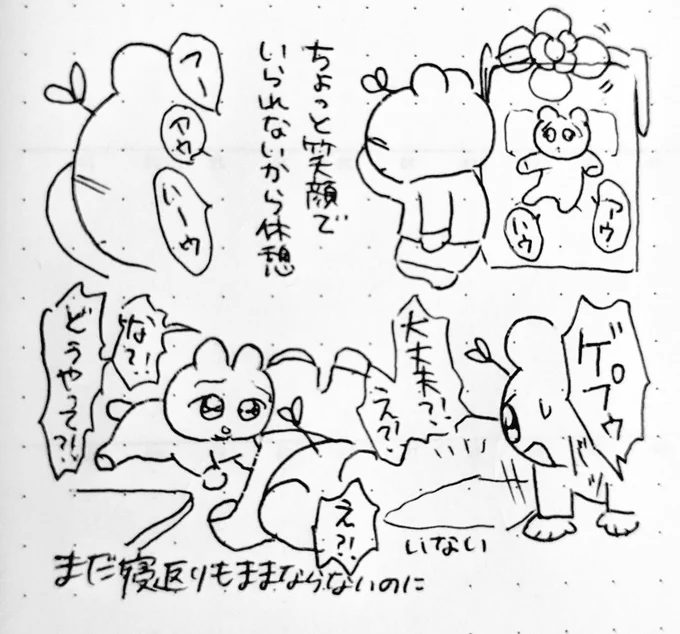 アーウ
いウ
ちょっと笑顔で
いられないから休憩
うー
やや
いーや
ゲプゥ
大丈夫?!
え?!
いない
な?!
どうやって?!
え?!
まだ寝返りもままならないのに